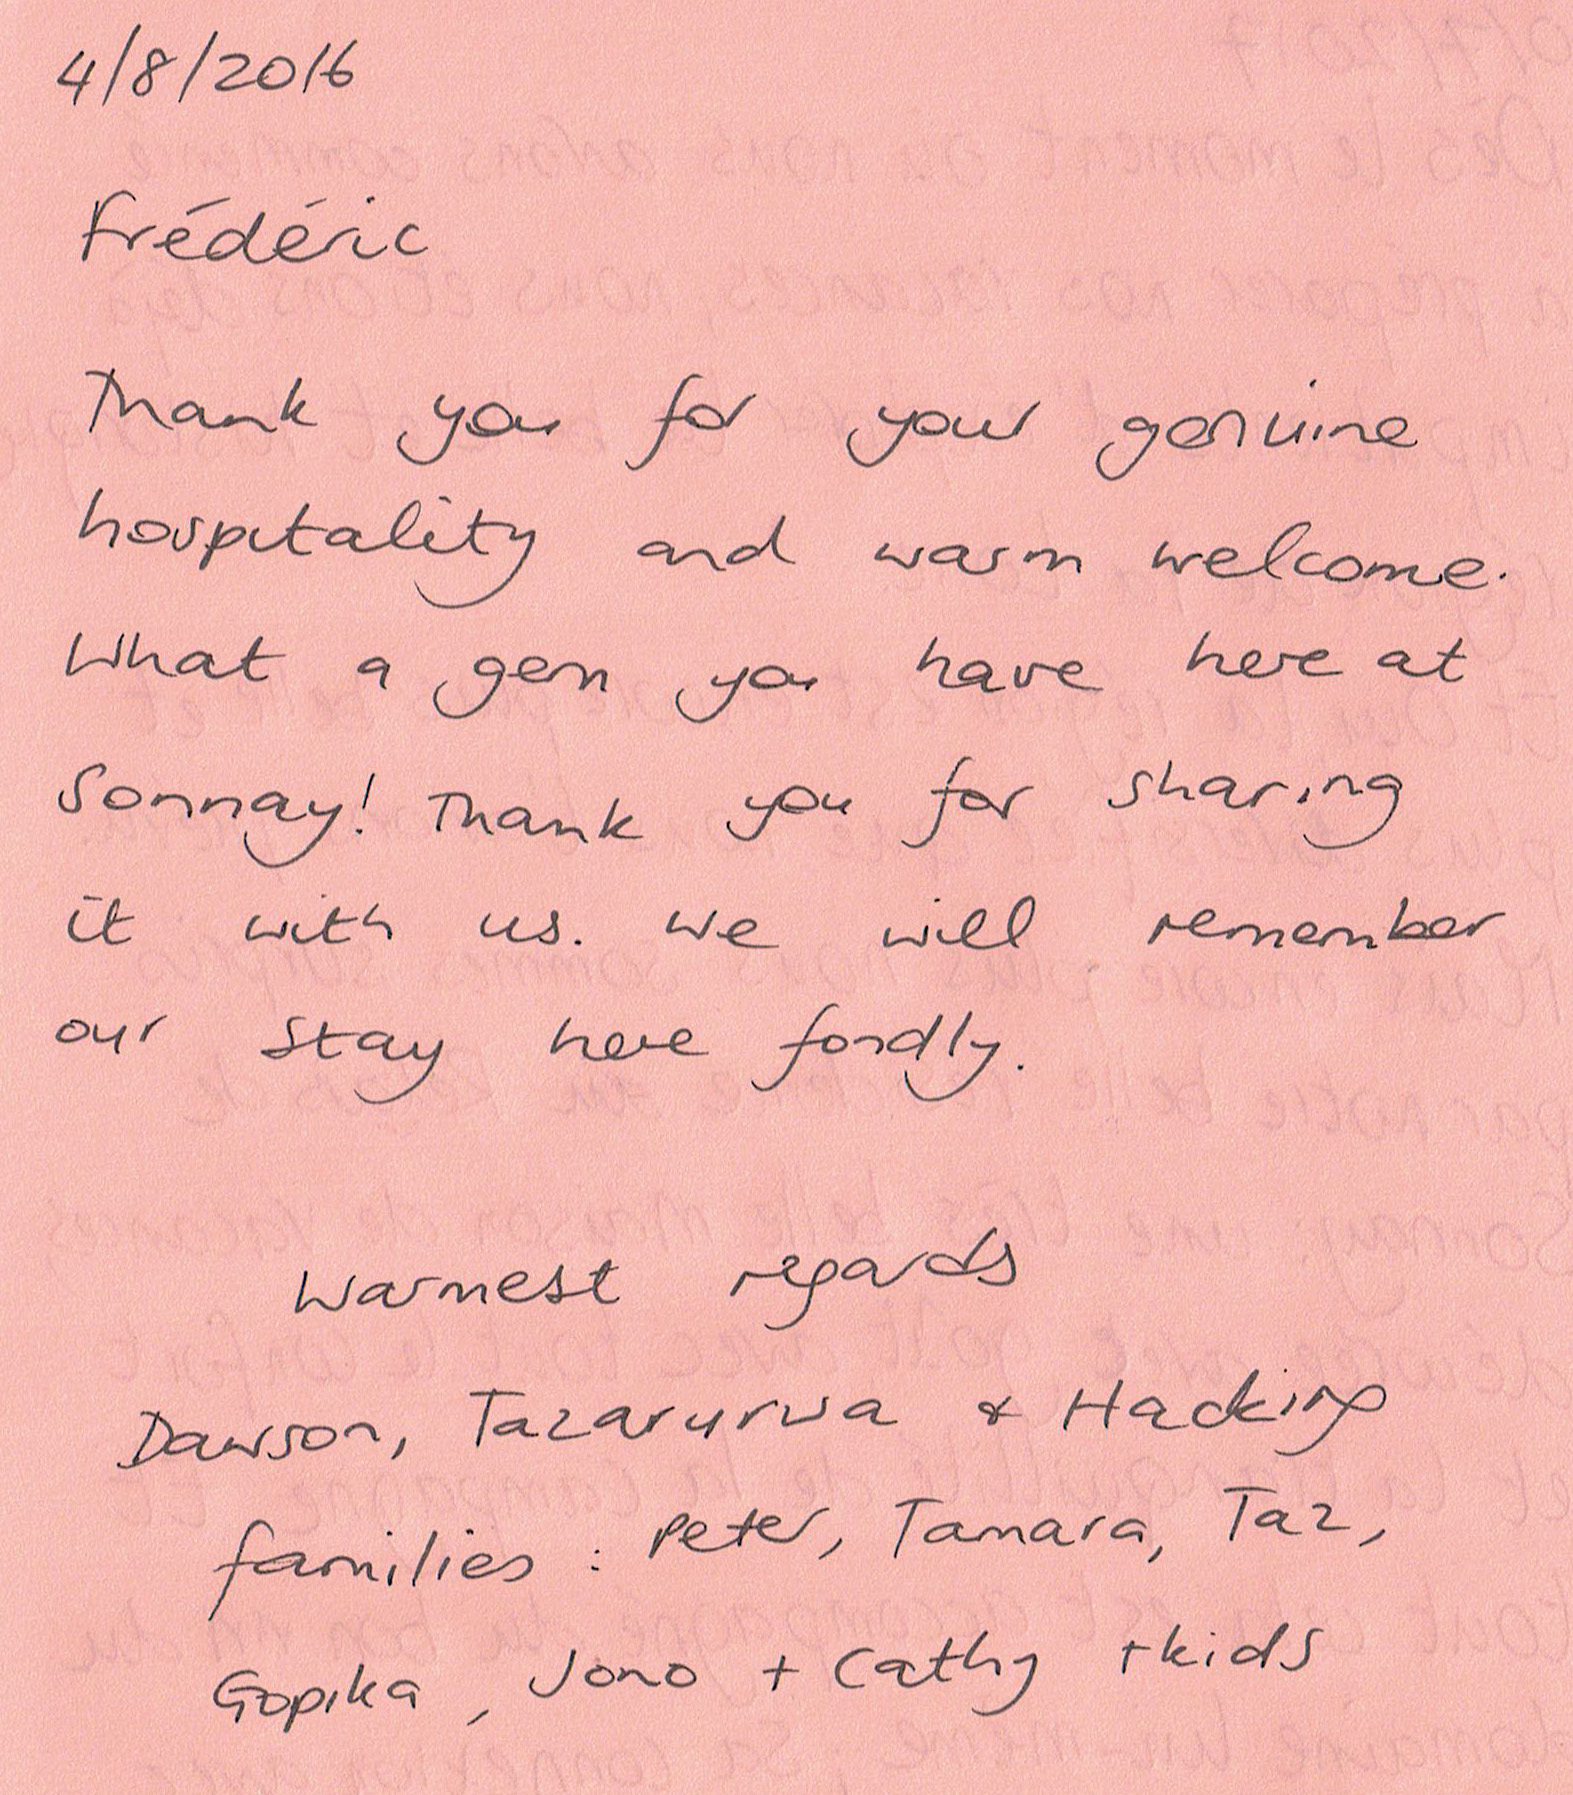 4/8/2016
Frédéric
Thank you for your genuine
hospitality and warm welcome.
What a gem you have here at
Sonnay! Thank you for sharing
it with us. We will remember
our stay here fondly.
Warmest regards
Dawson, Tazarurwa & Hacking
families : Peter, Tamara, Taz,
Gopika, Jono + Cathy + kids